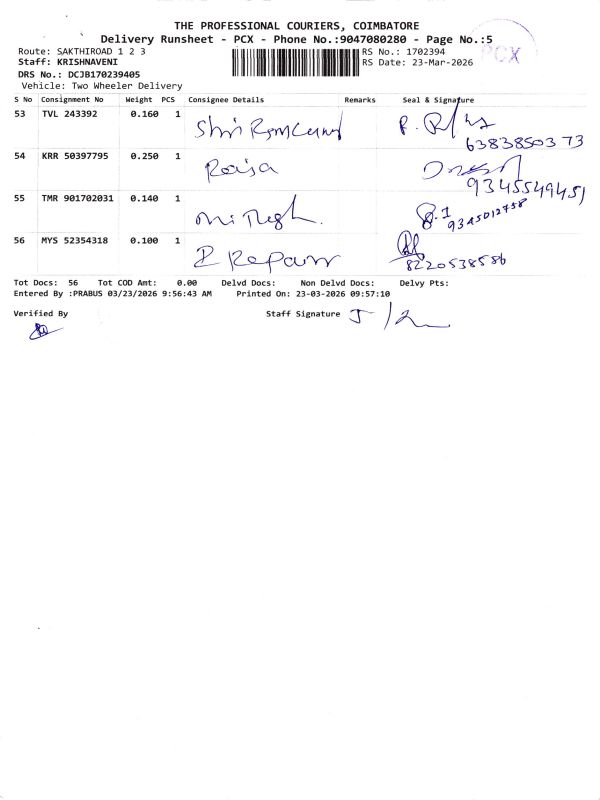 THE PROFESSIONAL COURIERS, COIMBATORE
Delivery Runsheet - PCX - Phone No.:9047080280 - Page No.:5
PCX
Route: SAKTHIROAD 1 2 3
RS No.: 1702394
Staff: KRISHNAVENI
RS Date: 23-Mar-2026
DRS No.: DCJB170239405
Vehicle: Two Wheeler Delivery
S No Consignment No Weight PCS Consignee Details Remarks Seal & Signature
53 TVL 243392 0.160 1 Shri
6383850373
54 KRR 50397795 0.250 1 Raisa
9345549451
55 TMR 901702031 0.140 1
9345012758
56 MYS 52354318 0.100 1
8220538586
Tot Docs: 56 Tot COD Amt: 0.00 Delvd Docs: Non Delvd Docs: Delvy Pts:
Entered By :PRABUS 03/23/2026 9:56:43 AM Printed On: 23-03-2026 09:57:10
Verified By Staff Signature